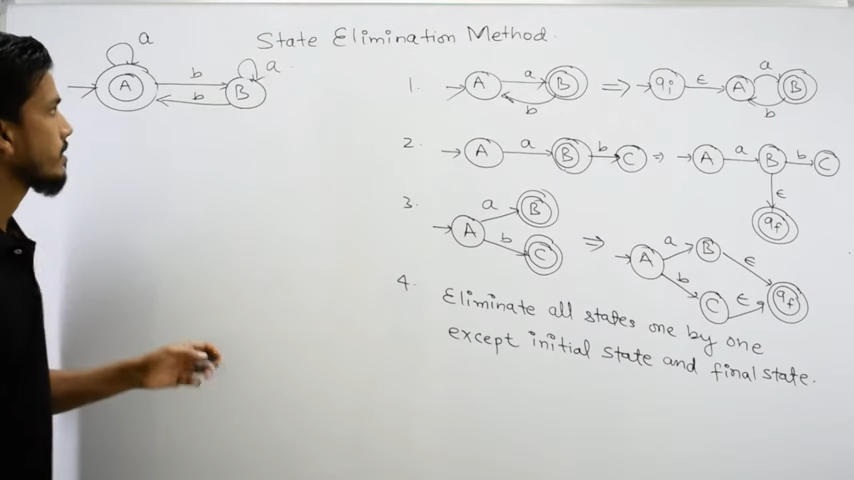 State Elimination Method
a
b
a
A
B
b
1.
A
a
B
b
⇒
qi
ε
A
a
B
b
2.
A
a
B
b
C
⇒
A
a
B
b
C
ε
qf
3.
A
a
B
b
C
⇒
A
a
B
ε
b
C
ε
qf
4.
Eliminate all states one by one
except initial state and final state.